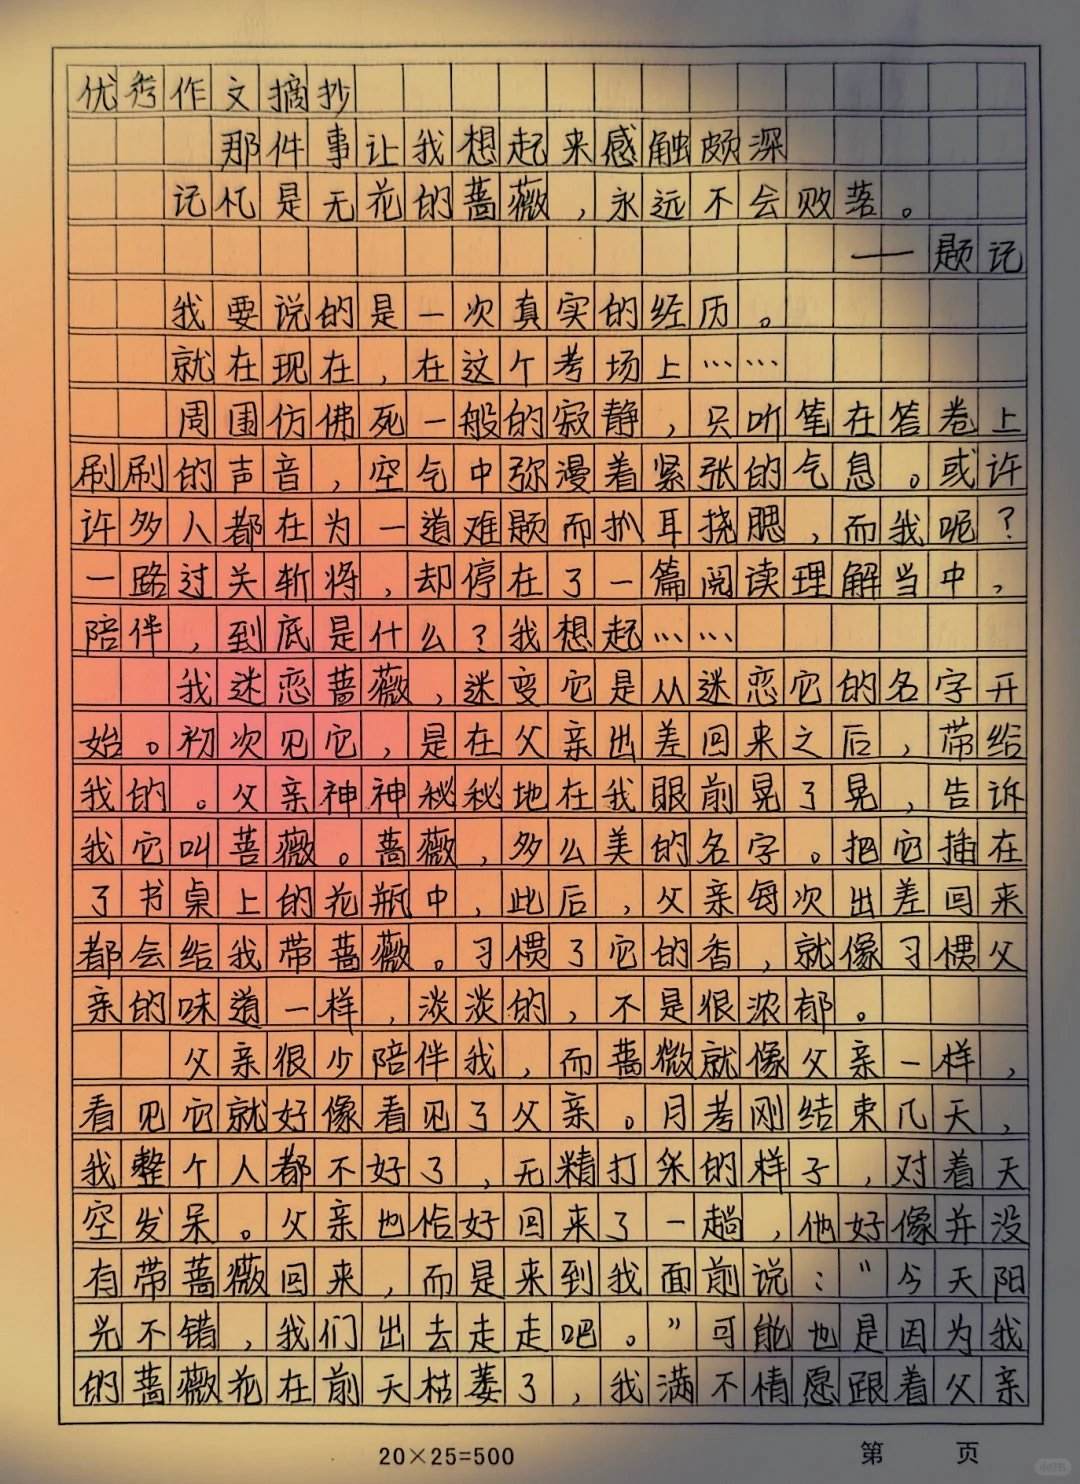 优秀作文摘抄
那件事让我想起来感触颇深
记忆是无花的蔷薇，永远不会败落。
——题记
我要说的是一次真实的经历。
就在现在，在这个考场上……
周围仿佛死一般的寂静，只听笔在答卷上
刷刷的声音，空气中弥漫着紧张的气息。或许
许多人都在为一道难题而抓耳挠腮，而我呢？
一路过关斩将，却停在了一篇阅读理解当中，
陪伴，到底是什么？我想起……
我迷恋蔷薇，迷变它是从迷恋它的名字开
始。初次见它，是在父亲出差回来之后，带给
我的。父亲神神秘秘地在我眼前晃了晃，告诉
我它叫蔷薇。蔷薇，多么美的名字。把它插在
了书桌上的花瓶中，此后，父亲每次出差回来
都会给我带蔷薇。习惯了它的香，就像习惯父
亲的味道一样，淡淡的，不是很浓郁。
父亲很少陪伴我，而蔷薇就像父亲一样，
看见它就好像看见了父亲。月考刚结束几天，
我整个人都不好了，无精打采的样子，对着天
空发呆。父亲也恰好回来了一趟，他好像并没
有带蔷薇回来，而是来到我面前说：“今天阳
光不错，我们出去走走吧。”可能也是因为我
的蔷薇花在前天枯萎了，我满不情愿跟着父亲
20×25=500
第 页